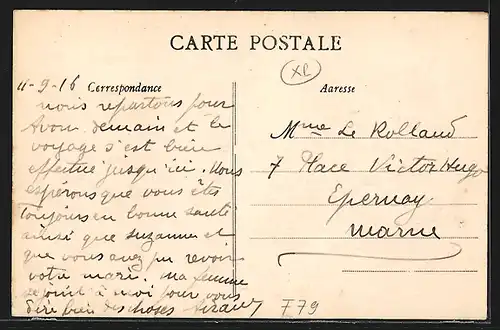 CARTE POSTALE
XR
11-9-16 Correspondance
nous repartons pour
Avon demain et le
voyage s'est bien
effectué jusqu'ici. Nous
espérons que vous êtes
toujours en bonne santé
ainsi que Suzanne et
que vous avez pu revoir
votre mari. Ma femme
se joint à moi pour vous
dire bien des choses
Adresse
Mme Le Rolland
7 Place Victor Hugo
Epernay
Marne
F79